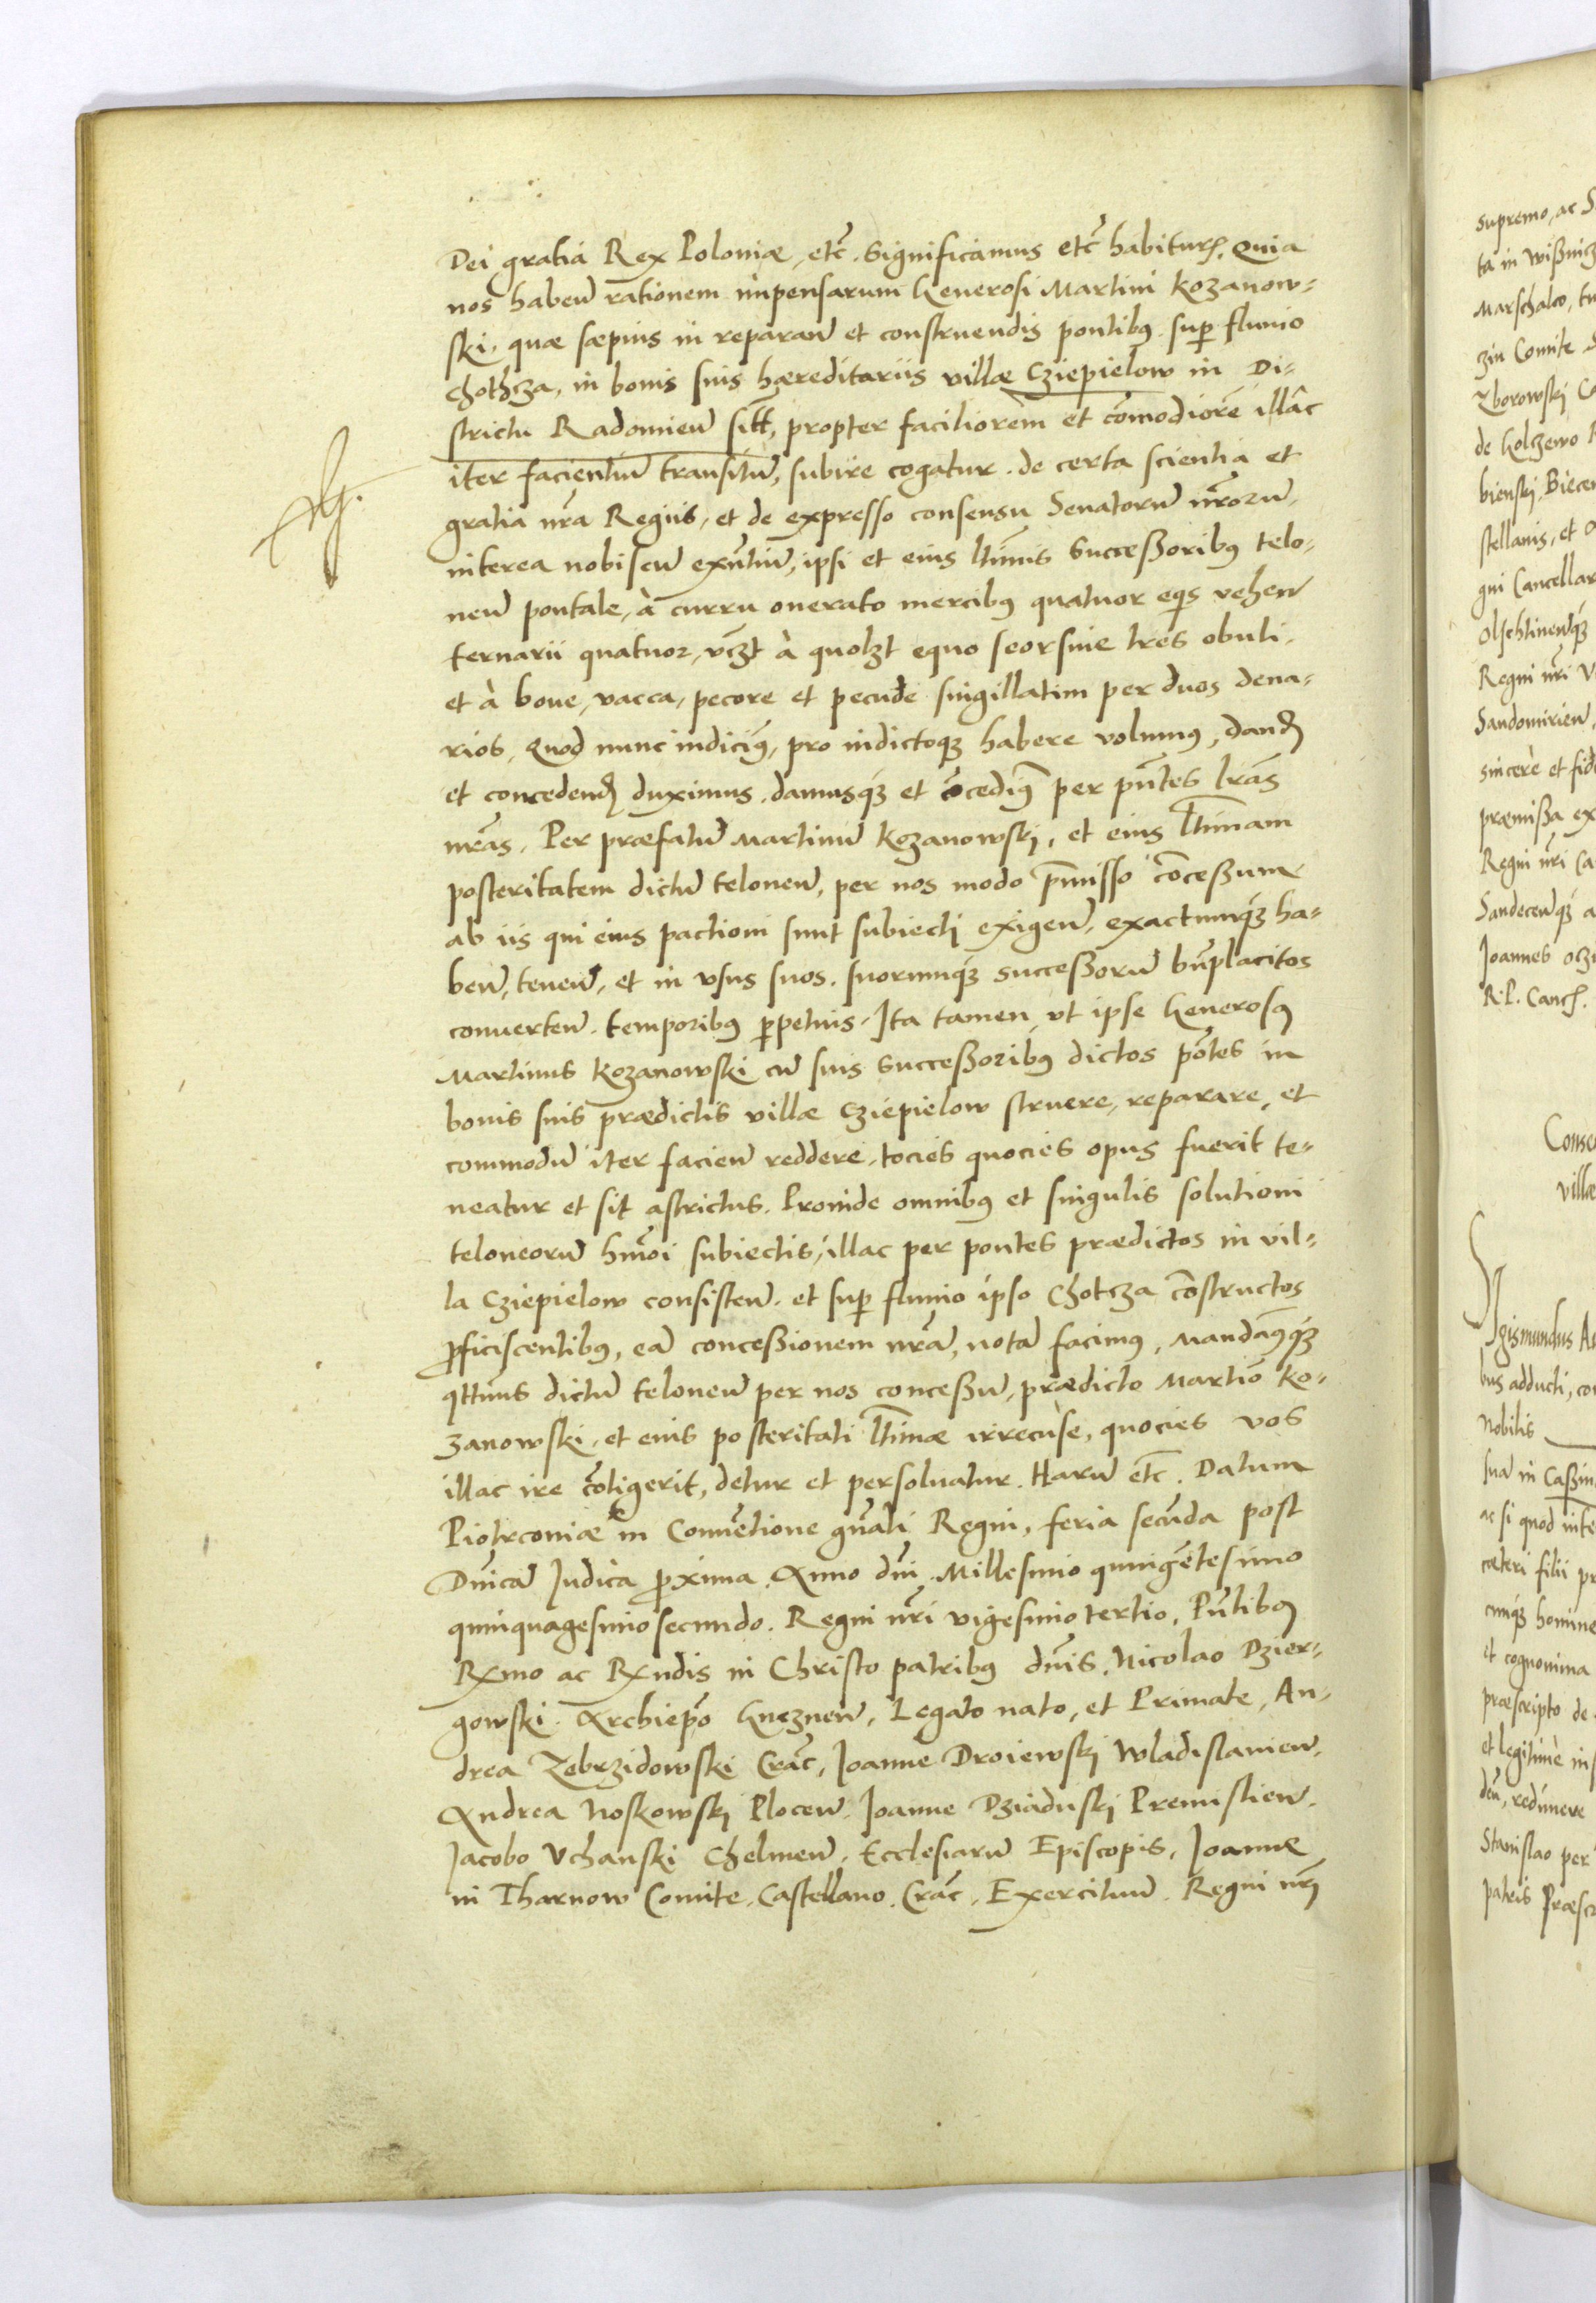 Dei gratia Rex Poloniæ, etc̃. Significamus etc̃ habitur, Quia
nos habeñ rationem impensarum Generosi Martini Kozanow-
ski, quæ sæpius in reparañ et construendis pontibus super fluuio
Chothcza, in bonis suis hæreditariis villæ Cziepielow in Di-
strictu Radomieñ sitt, propter faciliorem et cõmodiorẽ illàc
iter facientiũ transitũ, subire cogatur. de certa scientia et
gratia nr̃a Regiis, et de expresso consensu Senatorũ nr̃orũ,
interea nobiscũ exñtiũ, ipsi et eius lttimis Succeßoribus telo-
neũ pontale, à curru onerato mercibus quatuor eqis veheñ
ternarii quatuor, vczt à quolzt equo seorsiue tres obuli,
et à boue, vacca, pecore et pecude singillatim per duos dena-
rios, Quod nunc indicimus, pro indictoqz habere volumus, dand
et concedend duximus. damusqz et cõcedimus per pñtes lrãs
nrãs. Per præfatũ Martinũ Kozanowski, et eius lttimam
posteritatem dictũ teloneũ, per nos modo pmisso cõceßum
ab iis qui eius pactioni sunt subiecti exigeñ, exactumqz ha-
beñ, teneñ, et in vsus suos, suorumqz succeßorũ bñplacitos
conuerteñ. temporibus perpetuis. Ita tamen, vt ipse Generosus
Martinus Kozanowski cũ suis Succeßoribus dictos põtes in
bonis suis prædictis villæ Cziepielow struere, reparare, et
commodũ iter facieñ reddere, tocies quocies opus fuerit te-
neatur et sit astrictus. Proinde omnibus et singulis solutioni
teloneorũ hm̃oi subiectis, illac per pontes prædictos in vil-
la Cziepielow consisteñ, et super fluuio ipso Chotcza cõstructos
proficiscentibus, eã conceßionem nrã, notã facimus, Mandamusqz
qttius dictũ teloneũ per nos conceßũ, prædicto Martiõ Ko-
zanowski, et eius posteritati lttimæ irrecuse, quocies vos
illac ire cõtigerit, detur et persoluatur. Harũ etc̃. Datum
Piotrconiæ in Conuẽtione gñali Regni, feria secũda post
Dñicã Iudica proxima. Anno dñi Millesimo quingẽtesimo
quinquagesimo secundo. Regni nr̃i vigesimo tertio, Pñtibus
Rxmo ac Rxndis in Christo patribus dñis, Nicolao Dzier-
gowski. Archiepõ Gnezneñ, Legato nato, et Primate, An-
drea Zebrzidowski Crac̃, Ioanne Droiewski Wladislauieñ,
Andrea Noskowski Ploceñ, Ioanne Dziaduski Premislieñ,
Iacobo Vchanski Chelmeñ, Ecclesiarũ Episcopis, Ioanne
in Tharnow Comite, Castellano Crac̃, Exercituũ Regni nr̃i
supremo, ac S
ta in Wißnicz
Marschalco,
czin Comite
Zborowski Ca
de Golczewo
bienski, Biece
stellanis, et
gni Cancellar
Olschtineñqz
Regni nr̃i V
Sandomirieñ,
sincerè et fid
præmißa ex
Regni nr̃i Ca
Sandeceñqz a
Joannes Ocz
R. P. Canc.
Conse
villæ
Sigismundus Au
bus adducti, co
Nobilis
suã in Caßin
ac si quod inte
cæteri filii pr
cunqz homine
et cognomina
præscripto de
et legitimè in
deñ, redimere
Stanislao per
patris Præsc